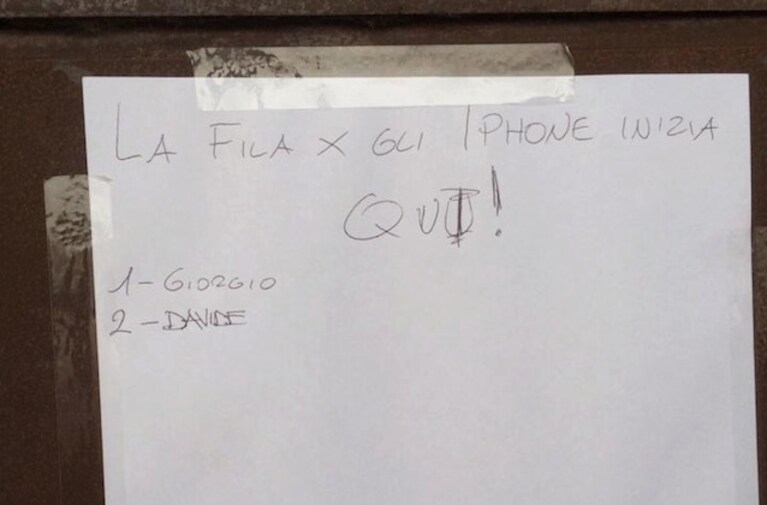 LA FILA X GLI IPHONE INIZIA
QUI!
1-GIORGIO
2-DAVIDE